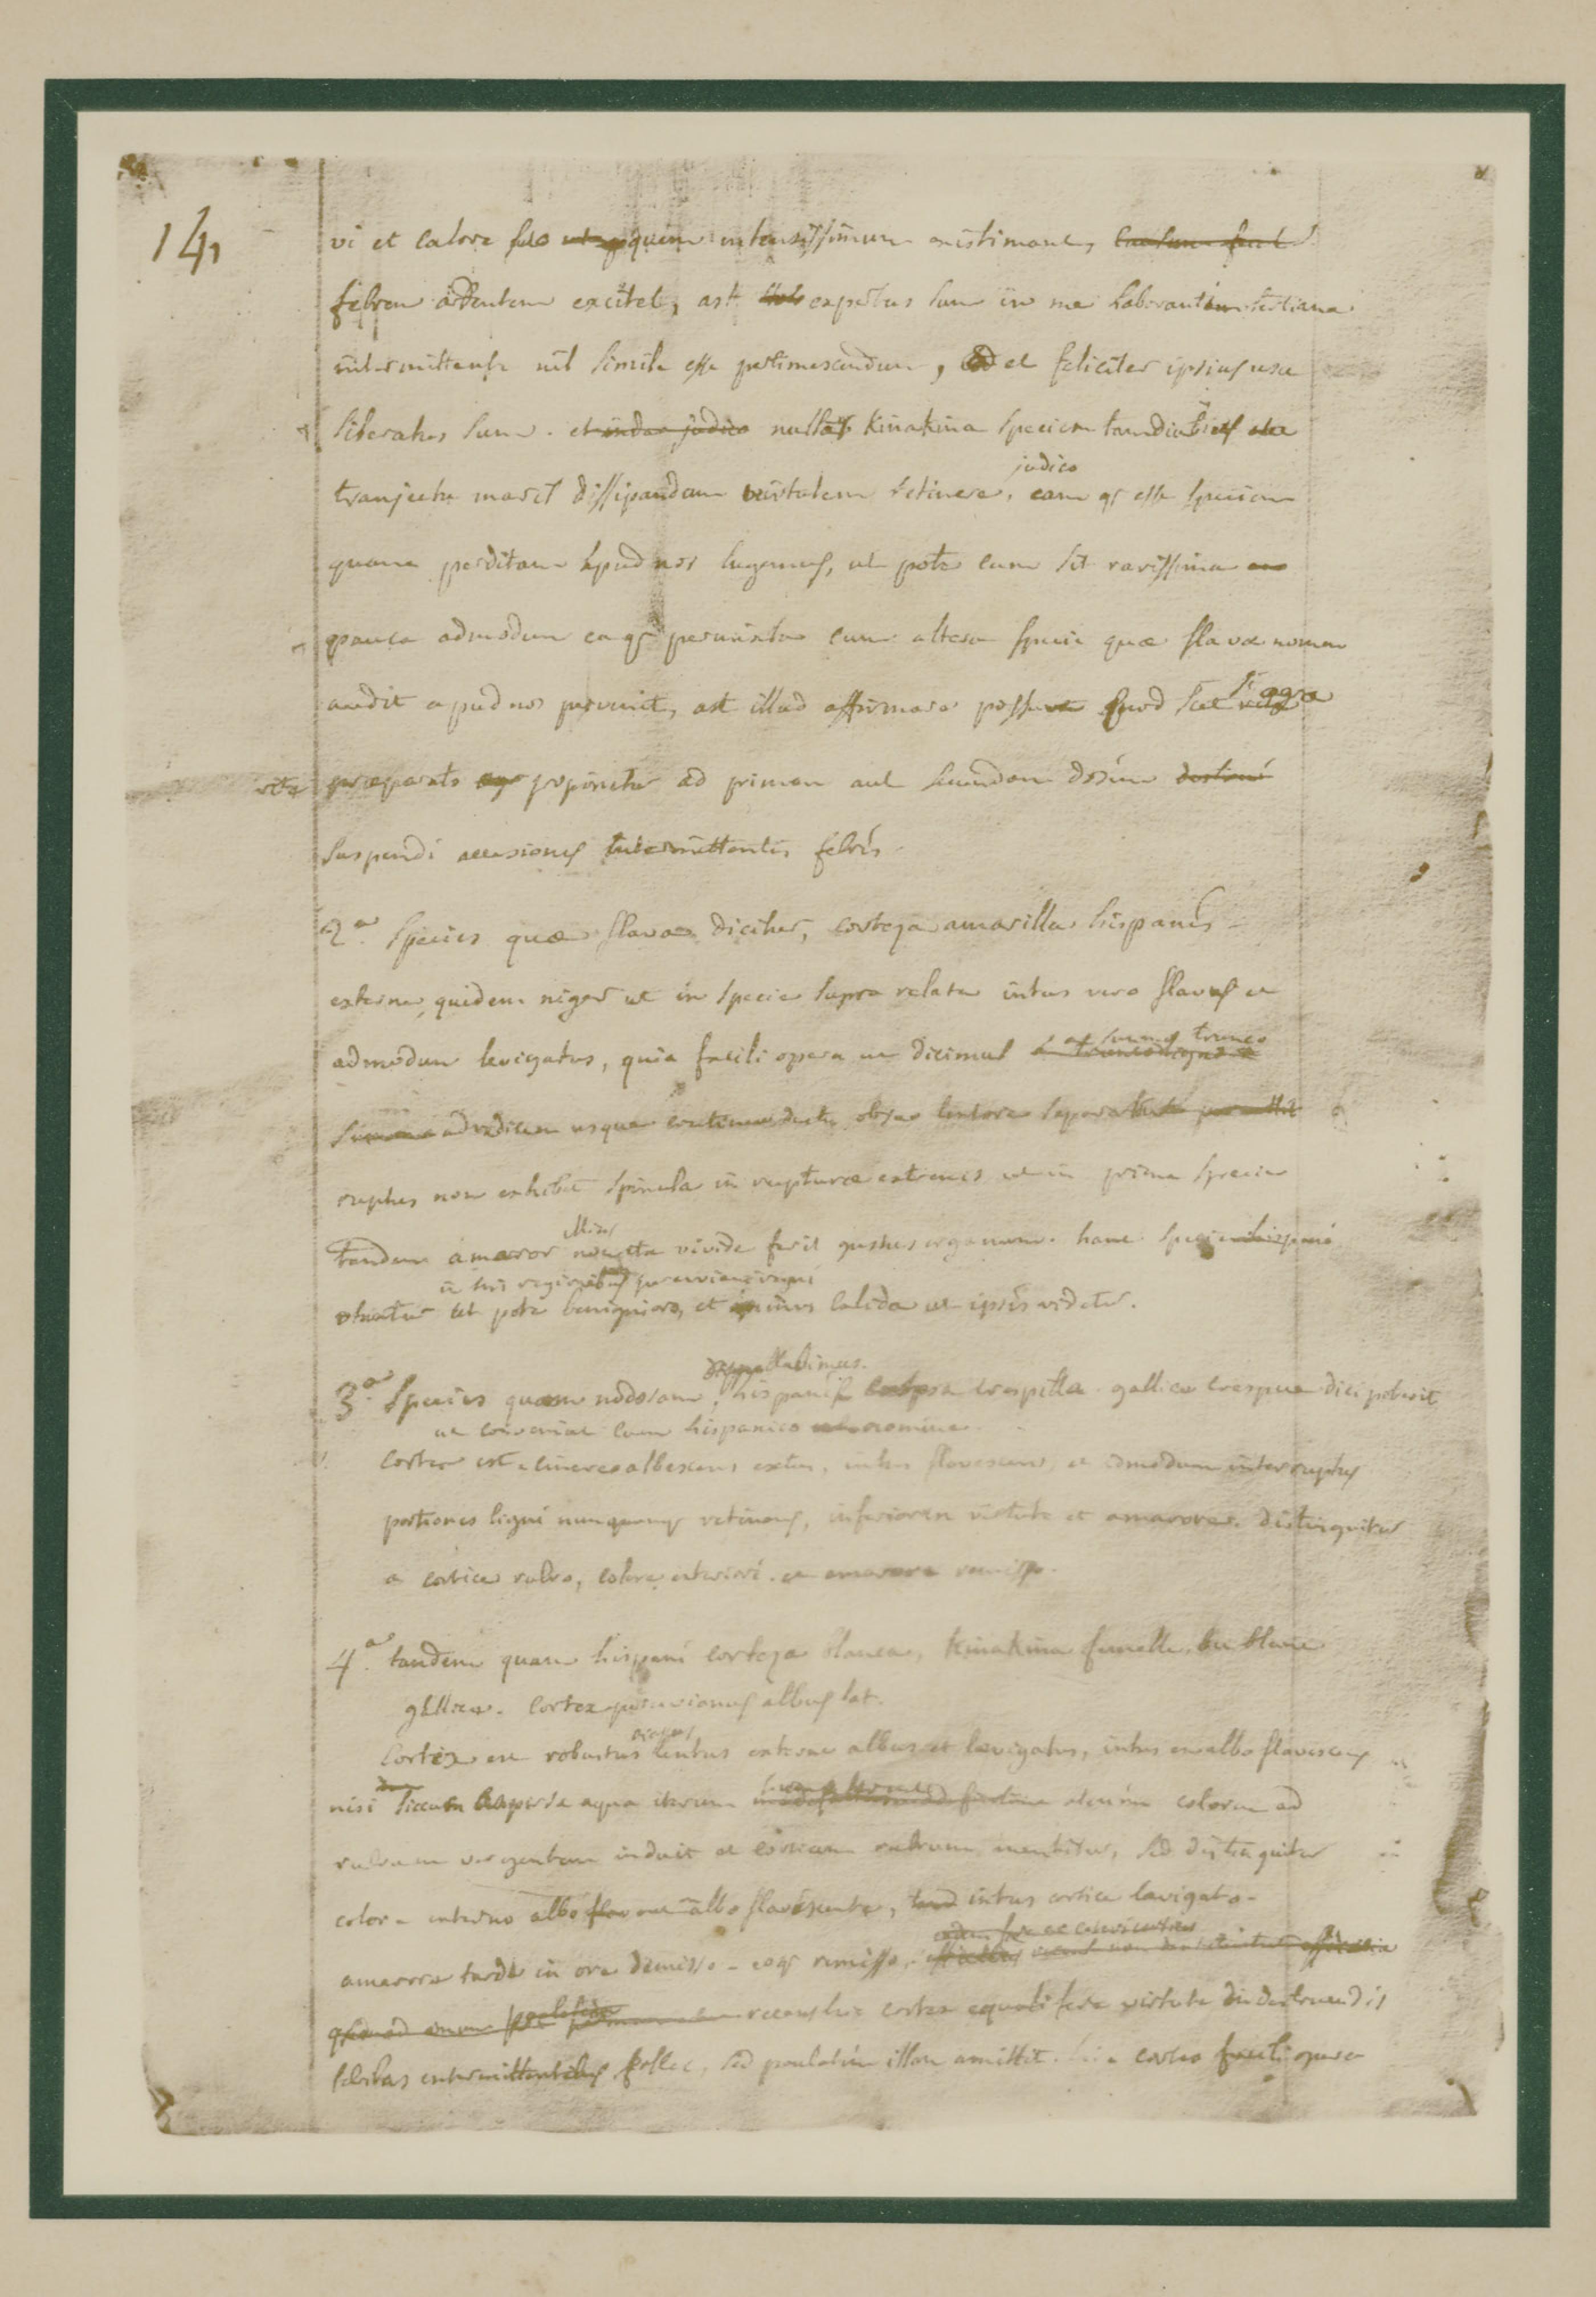 14
vi et calore suo quem intensissimum existimant,
febrem ardentem excitet, ast expertus sum in me laborante tertiana
intermittente nil simile esse pertimescendum, sed et feliciter ipsius usu
liberatus sum. et inde judico nullas kinakina speciem tamdiu
judico
tranjectu maris dissipandam virtutem retinere, eam qs esse speciem
quam perditam apud nos lugemus, ut pote cum sit rarissima
pauca admodum eaqs permixta cum altera specie quæ flavæ nomen
audit apud nos pervenit, ast illud affirmare possum quod si ægro
rite præparato proponatur ad primam aut secundam dosim
suspendi accessiones intermittentis febris.
2.a Species quæ flava dicitur, corteza amarilla hispanis
externe quidem niger ut in specie supra relata intus vero flavus et
a summo trunco
admodum levigatus, quia facili opera ut dicimus
ad radicem usque continuo ductu obque lentore separatur
ruptus non exhibet spicula in rupturæ extremis ut in prima specie
tandem amaror non ita vivide ferit gustus organum. hanc speciem hispani
in his regionibus peruviani regni
utuntur ut pote benigniore, et minus calida ut ipsis videtur.
appellabimus.
3.a Species quam nodosam, hispanis corteza crespilla gallice crespue dici poterit
ut conveniat cum hispanico nomine
Cortex est cinereo albescens extus, intus flavescens, et admodum interruptus
portiones ligni nunquam retinens, inferiorem virtute et amarore. distinguitur
a cortice rubro, colore exteriori et amarore remisso.
4.a tandem quam hispani corteza blanca, kinakina femelle, ou blanc
gallice. Cortex peruvianus albus lat.
Cortex est robustus lentus externe albus et lævigatus, intus ex albo flavescens
nisi siccum asperse aqua iterum colorem ad
rubrum vergentem induit et corticem rubrum mentitur, sed distinguitur
colore interno albo flavescente, intus cortice lævigato
amarore tarde in ore demisso eoqs remisso,
recens hic cortex equali fere virtute in destruendis
febribus intermittentibus pollet, sed paulatim illam amittit. hic cortex facili opera